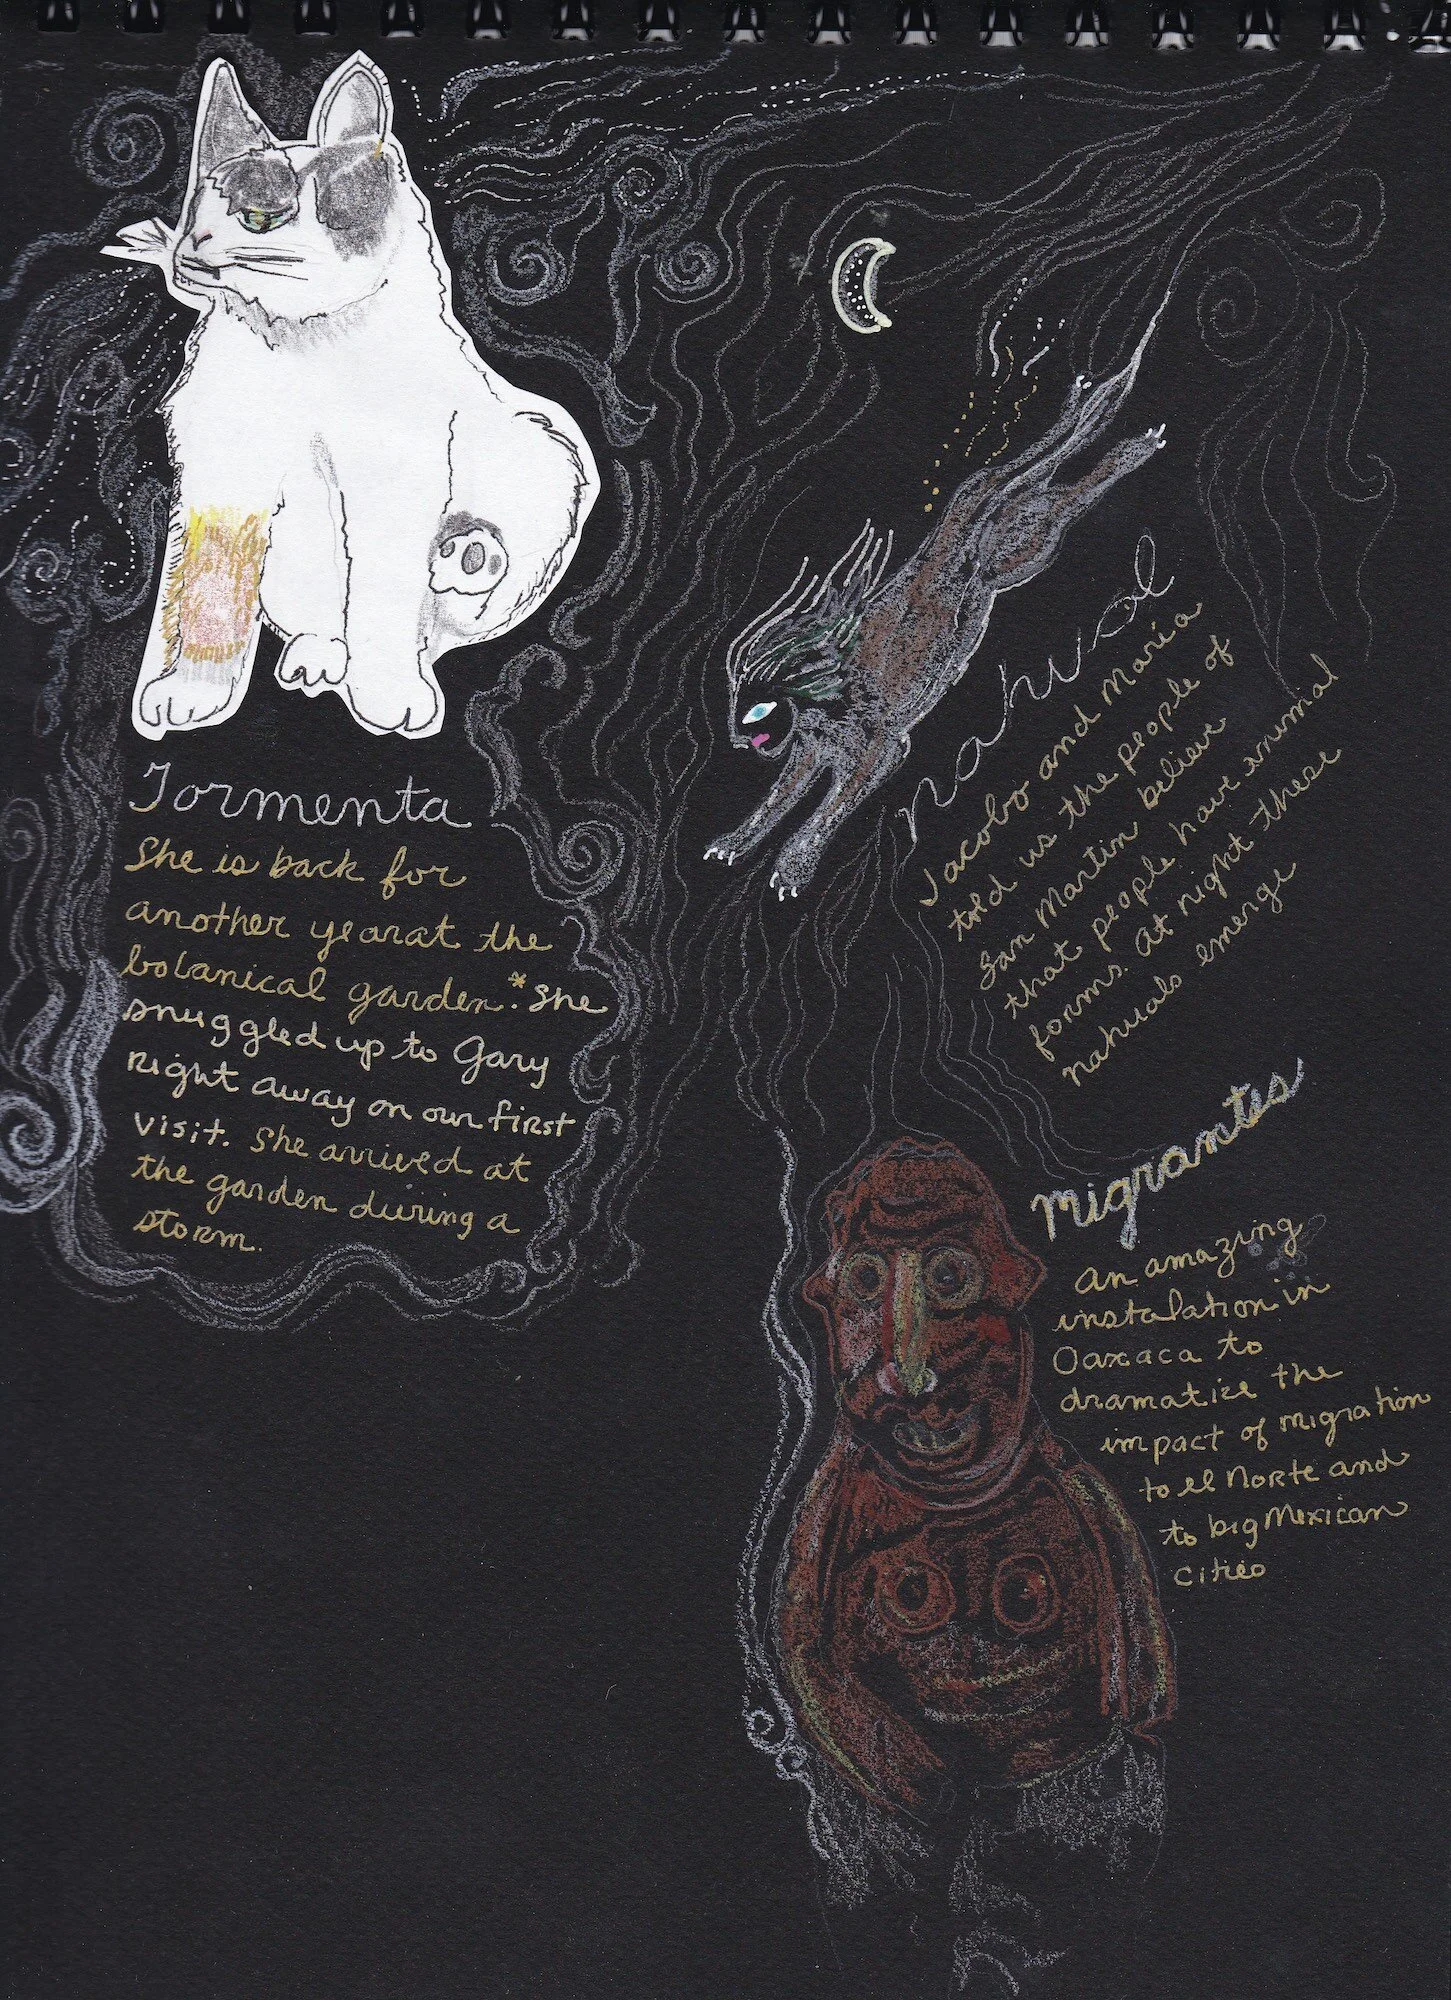 Tormenta
She is back for
another yearat the
botanical garden.* She
snuggled up to Gary
Right away on our first
visit. She arrived at
the garden during a
storm.
nahual
Jacobo and Maria
told us the people of
San Martin believe
that people have animal
forms. At night these
nahuals emerge
migrantes
An amazing
instalation in
Oaxaca to
dramatize the
impact of migration
to el Norte and
to big Mexican
cities